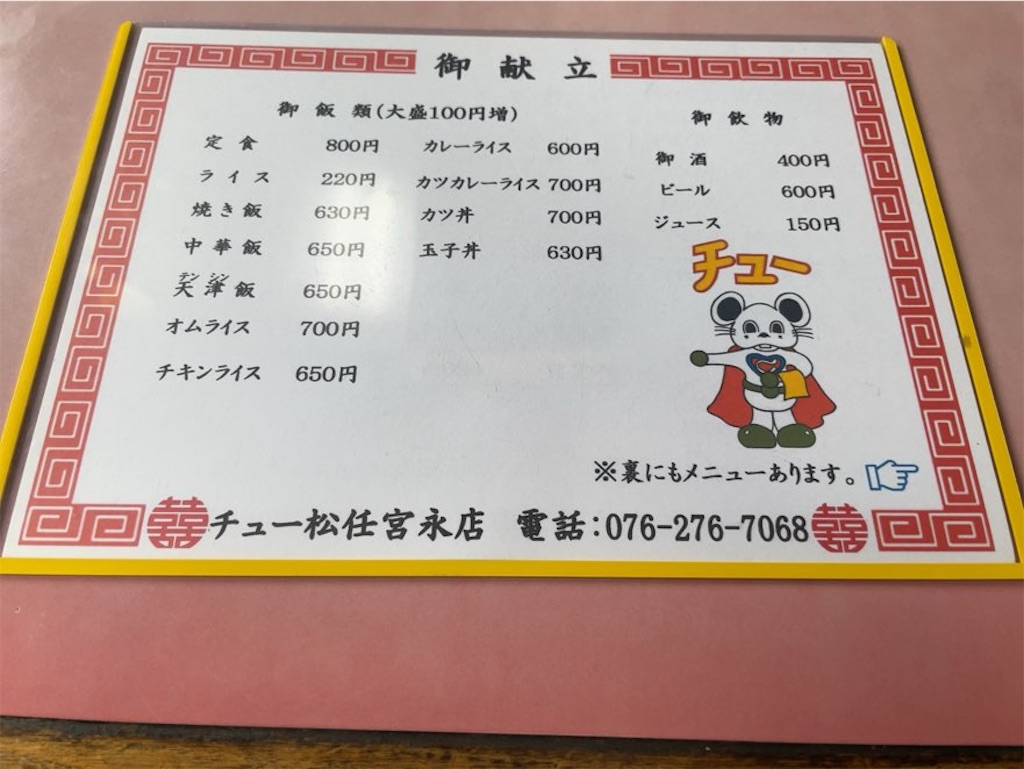 御献立
御飯類(大盛100円増)
定食 800円
ライス 220円
焼き飯 630円
中華飯 650円
テンシン
天津飯 650円
オムライス 700円
チキンライス 650円
カレーライス 600円
カツカレーライス 700円
カツ丼 700円
玉子丼 630円
御飲物
御酒 400円
ビール 600円
ジュース 150円
チュー
※裏にもメニューあります。
囍チュー松任宮永店 電話:076-276-7068囍